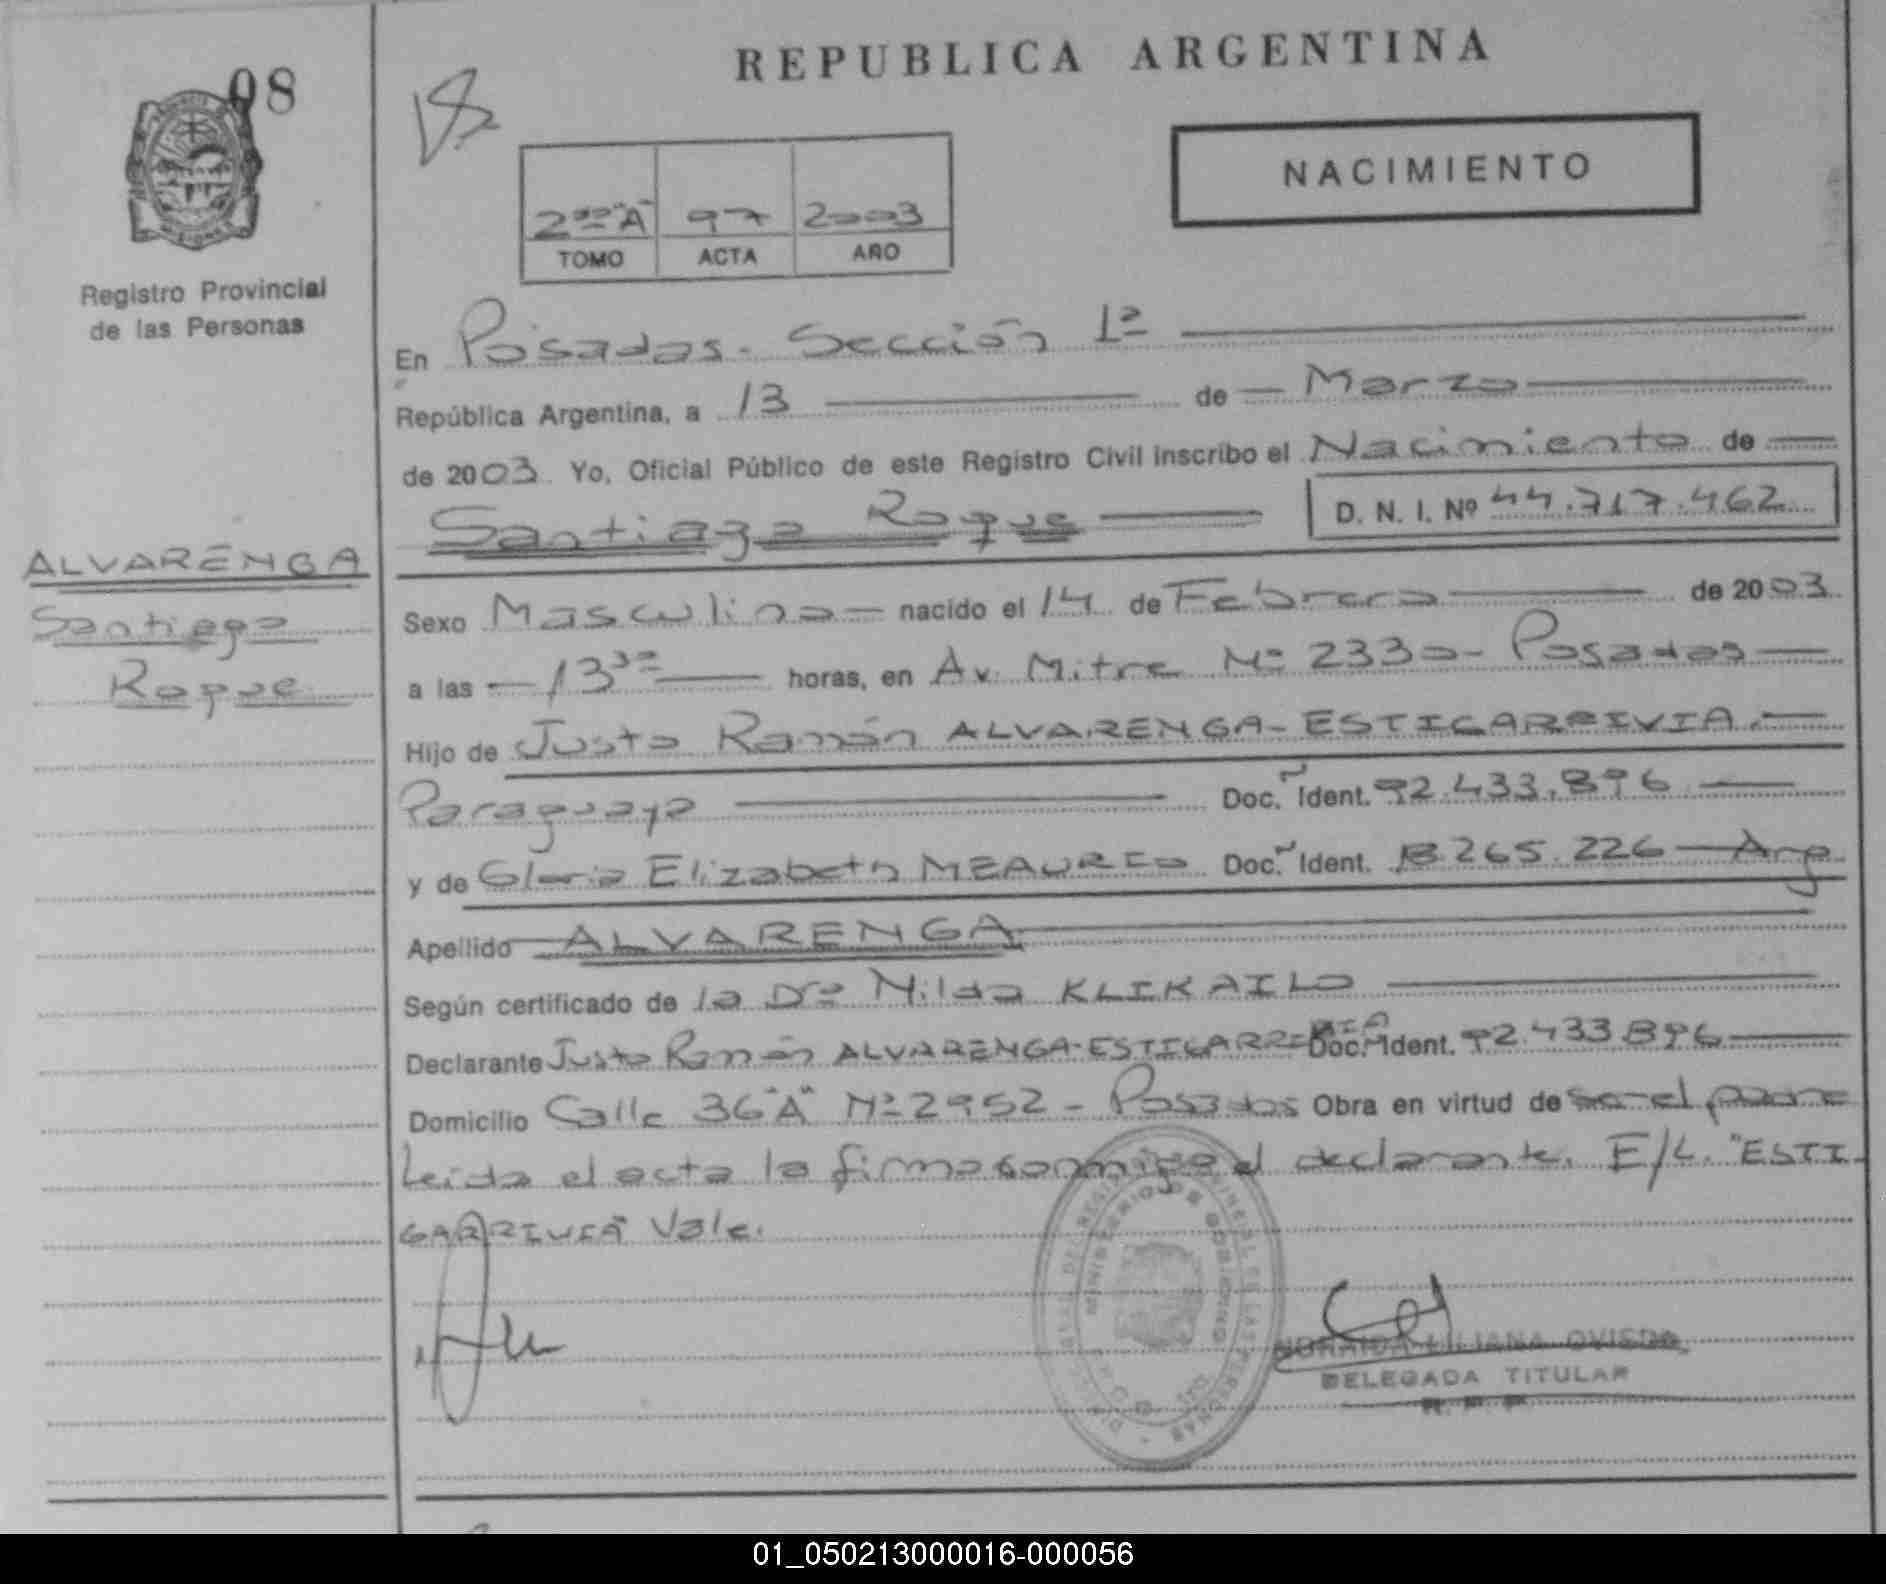 08
REPUBLICA ARGENTINA
NACIMIENTO
2do "A" 97 2003
TOMO ACTA AÑO
Registro Provincial
de las Personas
En Posadas. Sección 1ª
República Argentina, a 13 de Marzo
de 2003. Yo, Oficial Público de este Registro Civil inscribo el Nacimiento de
Santiago Roque D. N. I. Nº 44.717.462
ALVARENGA
Santiago
Roque
Sexo Masculino nacido el 14 de Febrero de 2003
a las 13 30 horas, en Av. Mitre Nº 2330 - Posadas
Hijo de Justo Ramón ALVARENGA-ESTIGARRIVIA.
Paraguayo Doc. Ident. 92.433.896
y de Gloria Elizabeth MEAURIO Doc. Ident. 18.265.226 Arg.
Apellido ALVARENGA
Según certificado de la Dra Nilda KLIKAILO
Declarante Justo Ramón ALVARENGA-ESTIGARRIVIA Doc. Ident. 92.433.896
Domicilio Calle 36 "A" Nº 2952 - Posadas Obra en virtud de ser el padre
Leida el acta la firma conmigo el declarante. E/L. "ESTI-
GARRIVIA" Vale.
MINISTERIO DE GOBIERNO
LILIANA OVIEDO
DELEGADA TITULAR
R. P. P.
01_050213000016-000056